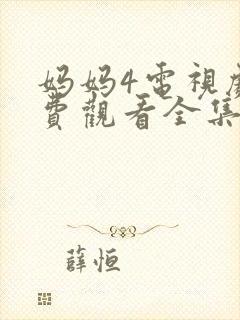 妈妈4電視劇
費觀看全集
薛恒